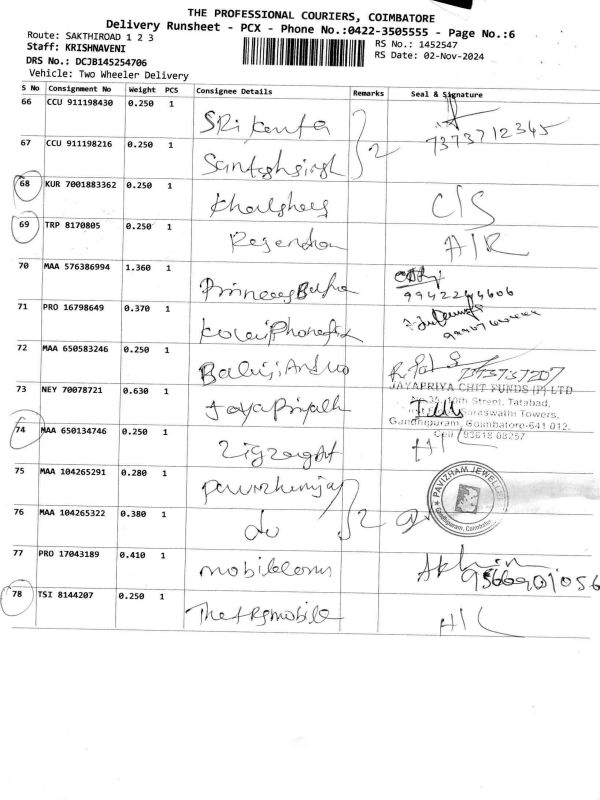 THE PROFESSIONAL COURIERS, COIMBATORE
Delivery Runsheet - PCX - Phone No.:0422-3505555 - Page No.:6
Route: SAKTHIROAD 1 2 3
RS No.: 1452547
Staff: KRISHNAVENI
RS Date: 02-Nov-2024
DRS No.: DCJB145254706
Vehicle: Two Wheeler Delivery
S No Consignment No Weight PCS Consignee Details Remarks Seal & Signature
66 CCU 911198430 0.250 1 SRi Kanta 7373712345
67 CCU 911198216 0.250 1 Santoshsingh 2
68 KUR 7001883362 0.250 1 C/S
69 TRP 8170805 0.250 1 Rajendran A/R
70 MAA 576386994 1.360 1 9942244606
71 PRO 16798649 0.370 1
72 MAA 650583246 0.250 1 Balaji 7373737207
73 NEY 70078721 0.630 1 JayaPriya
JAYAPRIYA CHIT FUNDS (P) LTD
No.35, 10th Street, Tatabad,
Saraswathi Towers,
Gandhipuram, Coimbatore-641 012.
Cell : 93618 08257
74 MAA 650134746 0.250 1 Zigzaght
75 MAA 104265291 0.280 1
PAVIZHAM JEWELLERS
Gandhipuram, Coimbatore
76 MAA 104265322 0.380 1 do 2
77 PRO 17043189 0.410 1 Akhin 9566901056
78 TSI 8144207 0.250 1